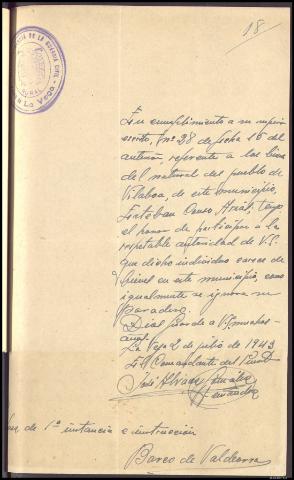 18
DE LA GUARDIA CIVIL
RURAL
La Vega
En cumplimiento a su superior
escrito, nº 28 de fecha 15 del
anterior, referente a los bienes
del natural del pueblo de
Vilaboa, de este municipio,
Esteban, tengo
el honor de participar a la
respetable autoridad de V.S.
que dicho individuo carece de
bienes en este municipio, como
igualmente se ignora su
paradero.
Dios guarde a V.S. muchos
años.
La Vega 2 de julio de 1943
El Comandante del Puesto
José Alvarez González
de 1ª instancia e instrucción
Barco de Valdeorras